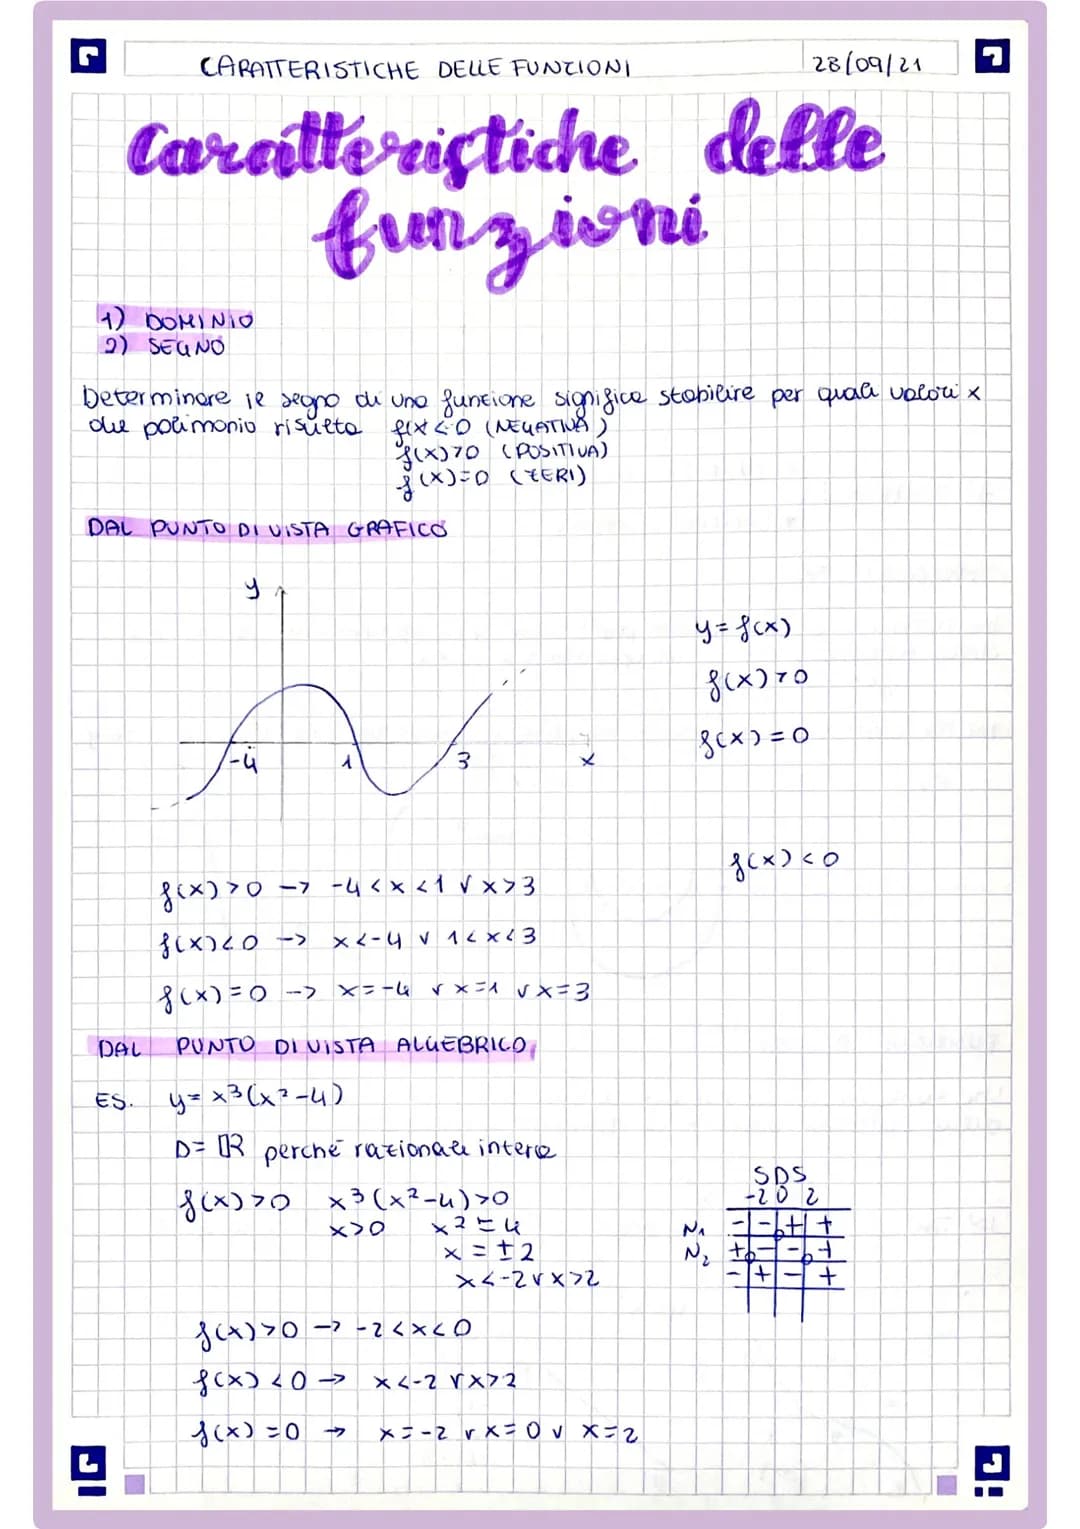 CARATTERISTICHE DELLE FUNZIONI
28/09/21
Caratteristiche delle
funzioni
1) DOMINIO
2) SEGNO
Determinare il segno di una funzione significa stabilire per quali valori x
che polimonio risulta f(x<0 (NEGATIVA)
f(x)>0 (POSITIVA)
f(x)=0 (ZERI)
DAL PUNTO DI VISTA GRAFICO
y
-4 1 3 x
y=f(x)
f(x)>0
f(x)=0
f(x)<0
f(x)>0 -> -4<x<1 ∨ x>3
f(x)<0 -> x<-4 ∨ 1<x<3
f(x)=0 -> x=-4 ∨ x=1 ∨ x=3
DAL PUNTO DI VISTA ALGEBRICO
ES. y= x³(x²-4)
D= ℝ perché razionale intera
f(x)>0 x³(x²-4)>0
x>0 x²=4
x=±2
x<-2 ∨ x>2
SDS
-2 0 2
N₁ - - + +
N₂ + - - +
- + - +
f(x)>0 -> -2<x<0
f(x)<0 -> x<-2 ∨ x>2
f(x)=0 -> x=-2 ∨ x=0 ∨ x=2